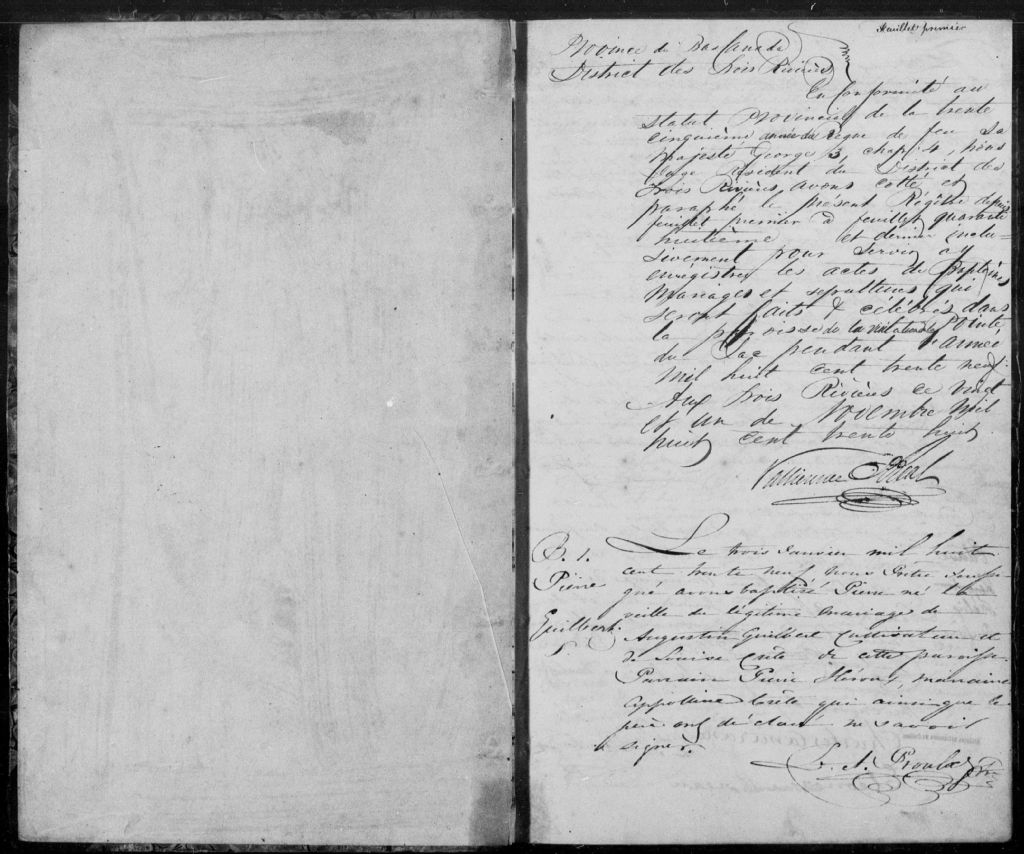 feuillet premier
Province du Bas Canada
District des Trois Rivières
En Conformité au
Statut Provincial de la trente
cinquième année du Règne de feu Sa
Majesté George 3, chap: 4, nous
Juge Résident du District des
Trois Rivières, avons cotté et
paraphé le présent Régître depuis
feuillet premier à feuillet quarante
huitième et dernier inclu-
sivement pour servir à y
enrégistrer les actes de Baptêmes
Mariages et sépultures qui
seront faits & célébrés dans
la paroisse de la visitation de la Pointe
du Lac pendant l'année
mil huit cent trente neuf.
Aux Trois Rivières ce vingt
et un de Novembre mil
huit cent trente huit.
B. 1.
Pierre
Guilbert.
Le trois Janvier mil huit
cent trente neuf nous Prêtre soussi-
gné avons baptisé Pierre né la
veille du légitime mariage de
Augustin Guilbert Cultivateur et
de Louise Coté de cette paroisse
Parrain Pierre marraine
Appolline Coté qui ainsi que le
père ont déclaré ne savoir
signer.
L. A. Proulx Ptre